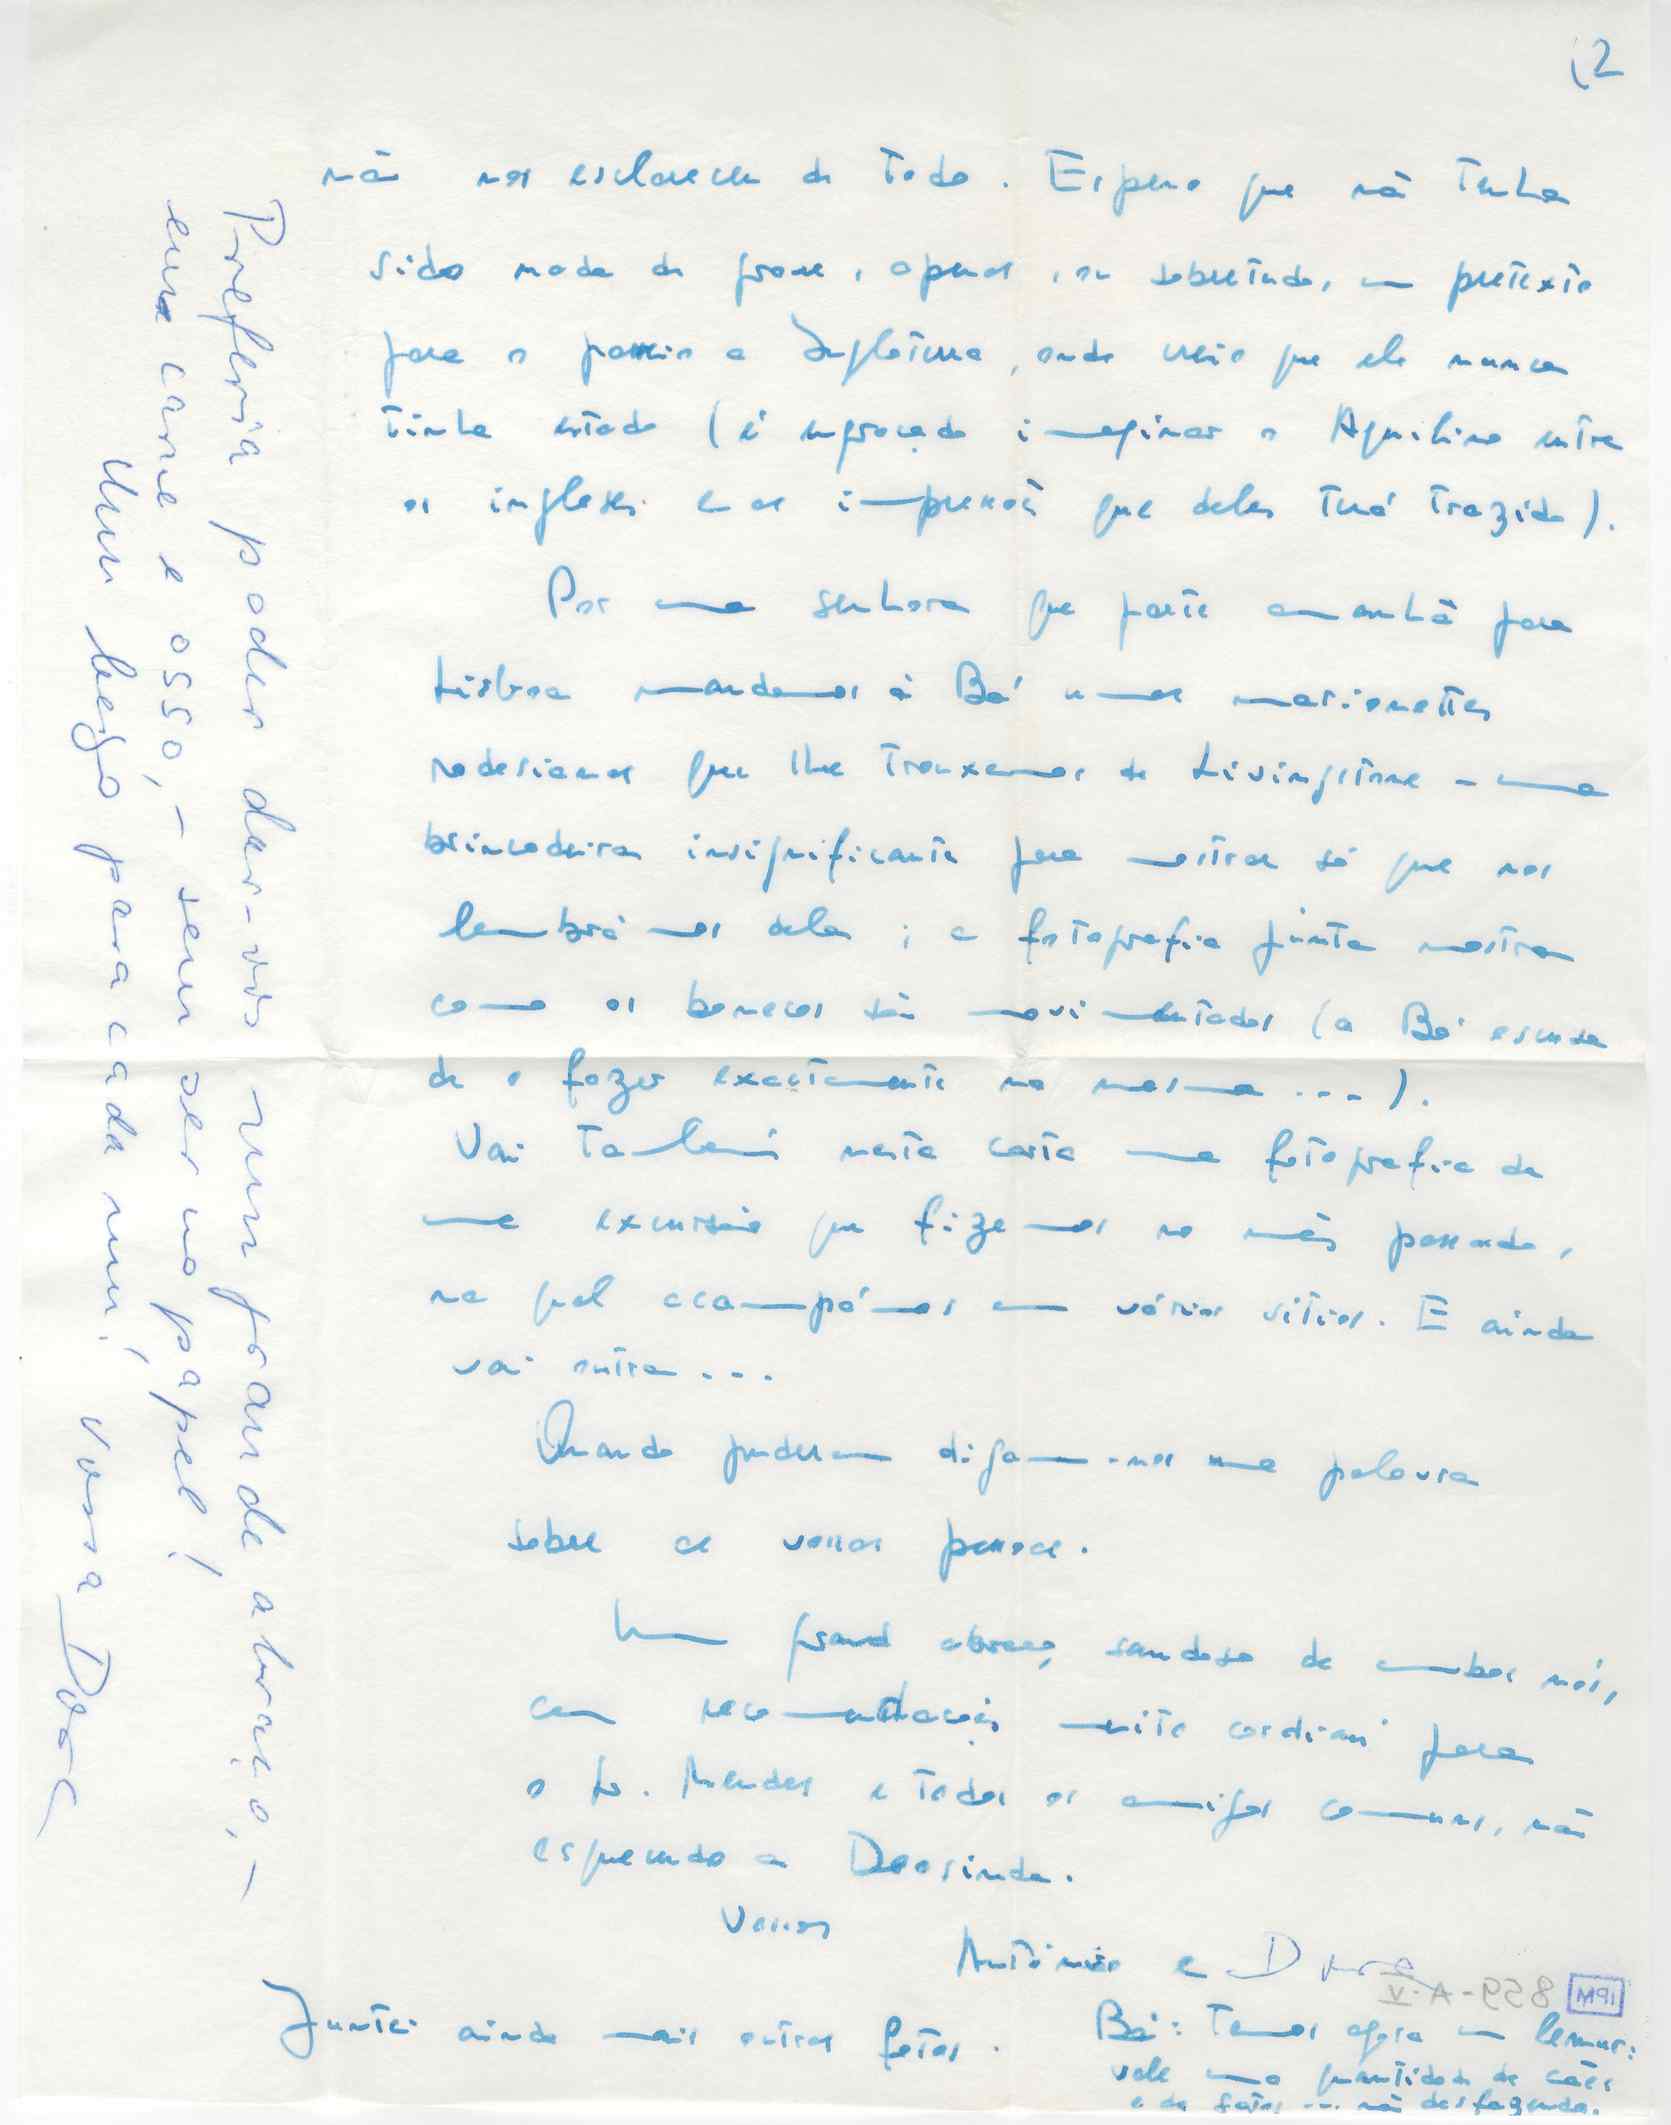 (2
não nos esclarecem de todo. Espero que não tenha
sido nada de grave, apenas, ou sobretudo, um pretexto
para o passeio a Inglaterra, onde creio que ele nunca
tinha estado (é engraçado imaginar o Aquilino entre
os ingleses e as impressões que deles terá trazido).
Por uma senhora que parte amanhã para
Lisboa mandamos à Bá umas marionettes
rodesianas que lhe trouxemos de Livingstone - uma
brincadeira insignificante para mostrar só que nos
lembrámos dela; a fotografia junta mostra
como os bonecos são movimentados (a Bá escusa
de o fazer exactamente na mesma...).
Vai também nesta carta uma fotografia de
uma excursão que fizemos no mês passado,
na qual acampámos em vários sítios. E ainda
vai outra...
Quando puderem digam-nos uma palavra
sobre as vossas pessoas.
Um grande abraço saudoso de ambos nós,
com recomendações muito cordiais para
o Sr. Mendes e todos os amigos comuns, não
esquecendo a Deosinda.
Vossos
António e Dora
Juntei ainda mais outras fotos.
Bá: Temos agora um lemur:
vale uma quantidade de cães
e de gatos... não desfazendo.
Preferia poder dar-vos num grande abraço, -
em carne e osso, - sem ser no papel!
Um beijo para cada um, vossa Dora
IPM
859-A-V